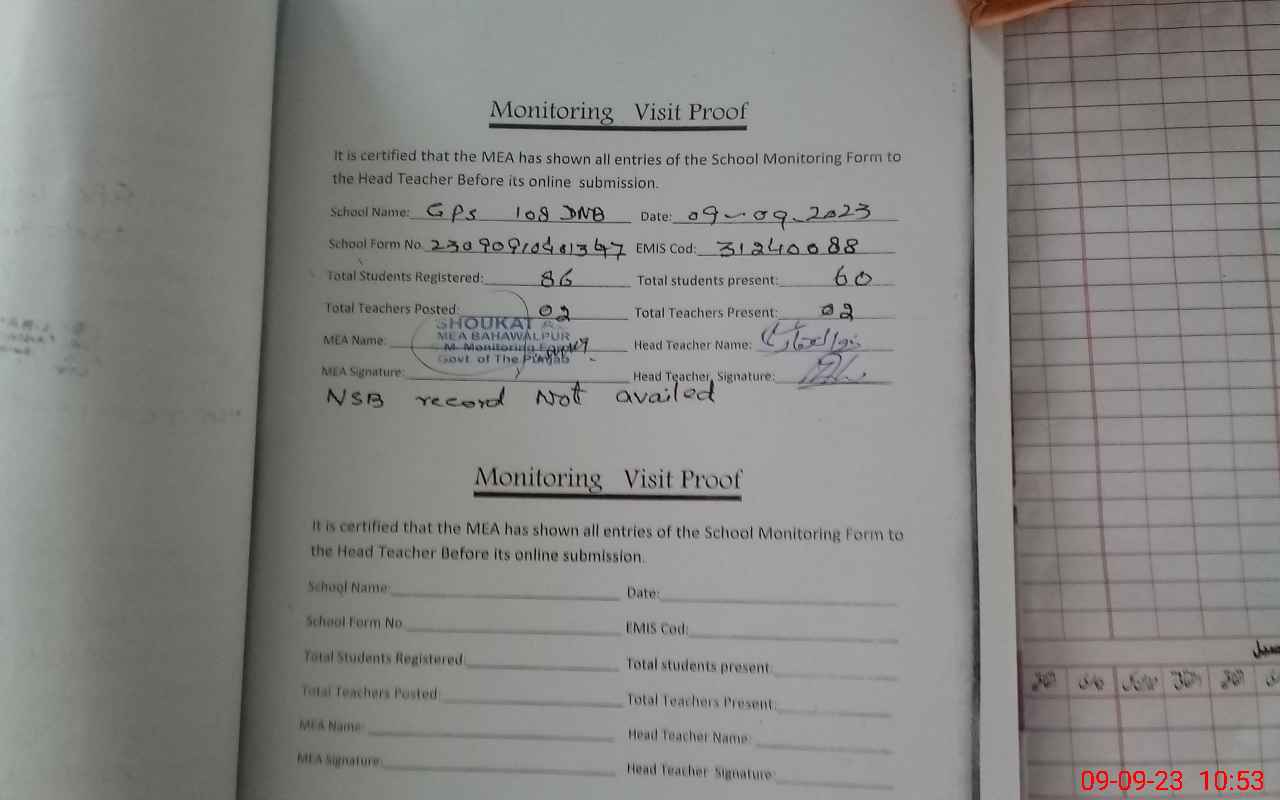 Monitoring Visit Proof
It is certified that the MEA has shown all entries of the School Monitoring Form to
the Head Teacher Before its online submission.
School Name: GPS 108 DNB Date: 09-09-2023
School Form No. EMIS Cod: 31240088
Total Students Registered: 86 Total students present: 60
Total Teachers Posted: 02 Total Teachers Present: 02
SHOUKAT
MEA BAHAWALPUR
MEA Name: Head Teacher Name:
M. Monitoring
Govt. of The Punjab
MEA Signature: Head Teacher Signature:
NSB record Not availed
Monitoring Visit Proof
It is certified that the MEA has shown all entries of the School Monitoring Form to
the Head Teacher Before its online submission.
School Name: Date:
School Form No. EMIS Cod:
Total Students Registered: Total students present:
Total Teachers Posted: Total Teachers Present:
MEA Name: Head Teacher Name:
MEA Signature: Head Teacher Signature:
09-09-23 10:53